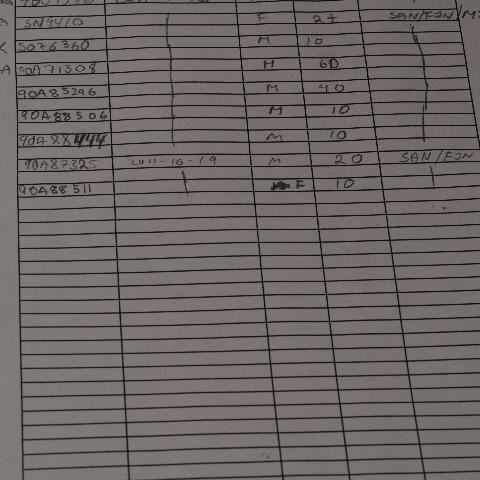 SN9410 F 2+ SAN/FJN/M
S076360 M 10
90A71308 M 60
90A85296 M 40
90A88506 M 10
90A88444 M 10
90A87325 2011-16-19 M 20 SAN/FJN
90A88511 F 10